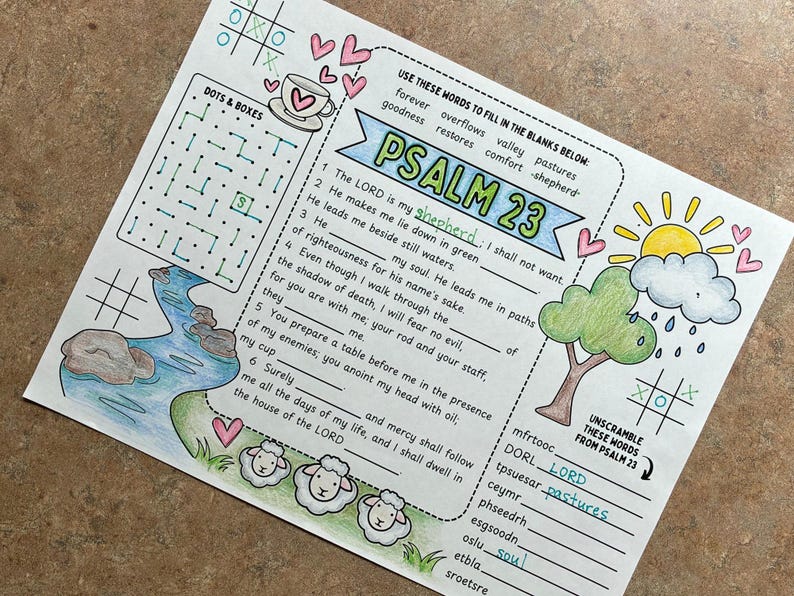 DOTS & BOXES
S
USE THESE WORDS TO FILL IN THE BLANKS BELOW:
forever overflows valley pastures
goodness restores comfort shepherd
PSALM 23
1 The LORD is my shepherd; I shall not want.
2 He makes me lie down in green
He leads me beside still waters.
3 He my soul. He leads me in paths
of righteousness for his name's sake.
4 Even though I walk through the of
the shadow of death, I will fear no evil,
for you are with me; your rod and your staff,
they me.
5 You prepare a table before me in the presence
of my enemies; you anoint my head with oil;
my cup
6 Surely and mercy shall follow
me all the days of my life, and I shall dwell in
the house of the LORD
UNSCRAMBLE
THESE WORDS
FROM PSALM 23
mfrtooc
DORL LORD
tpsuesar pastures
ceymr
phseedrh
esgsoodn
oslu soul
etbla
sroetsre